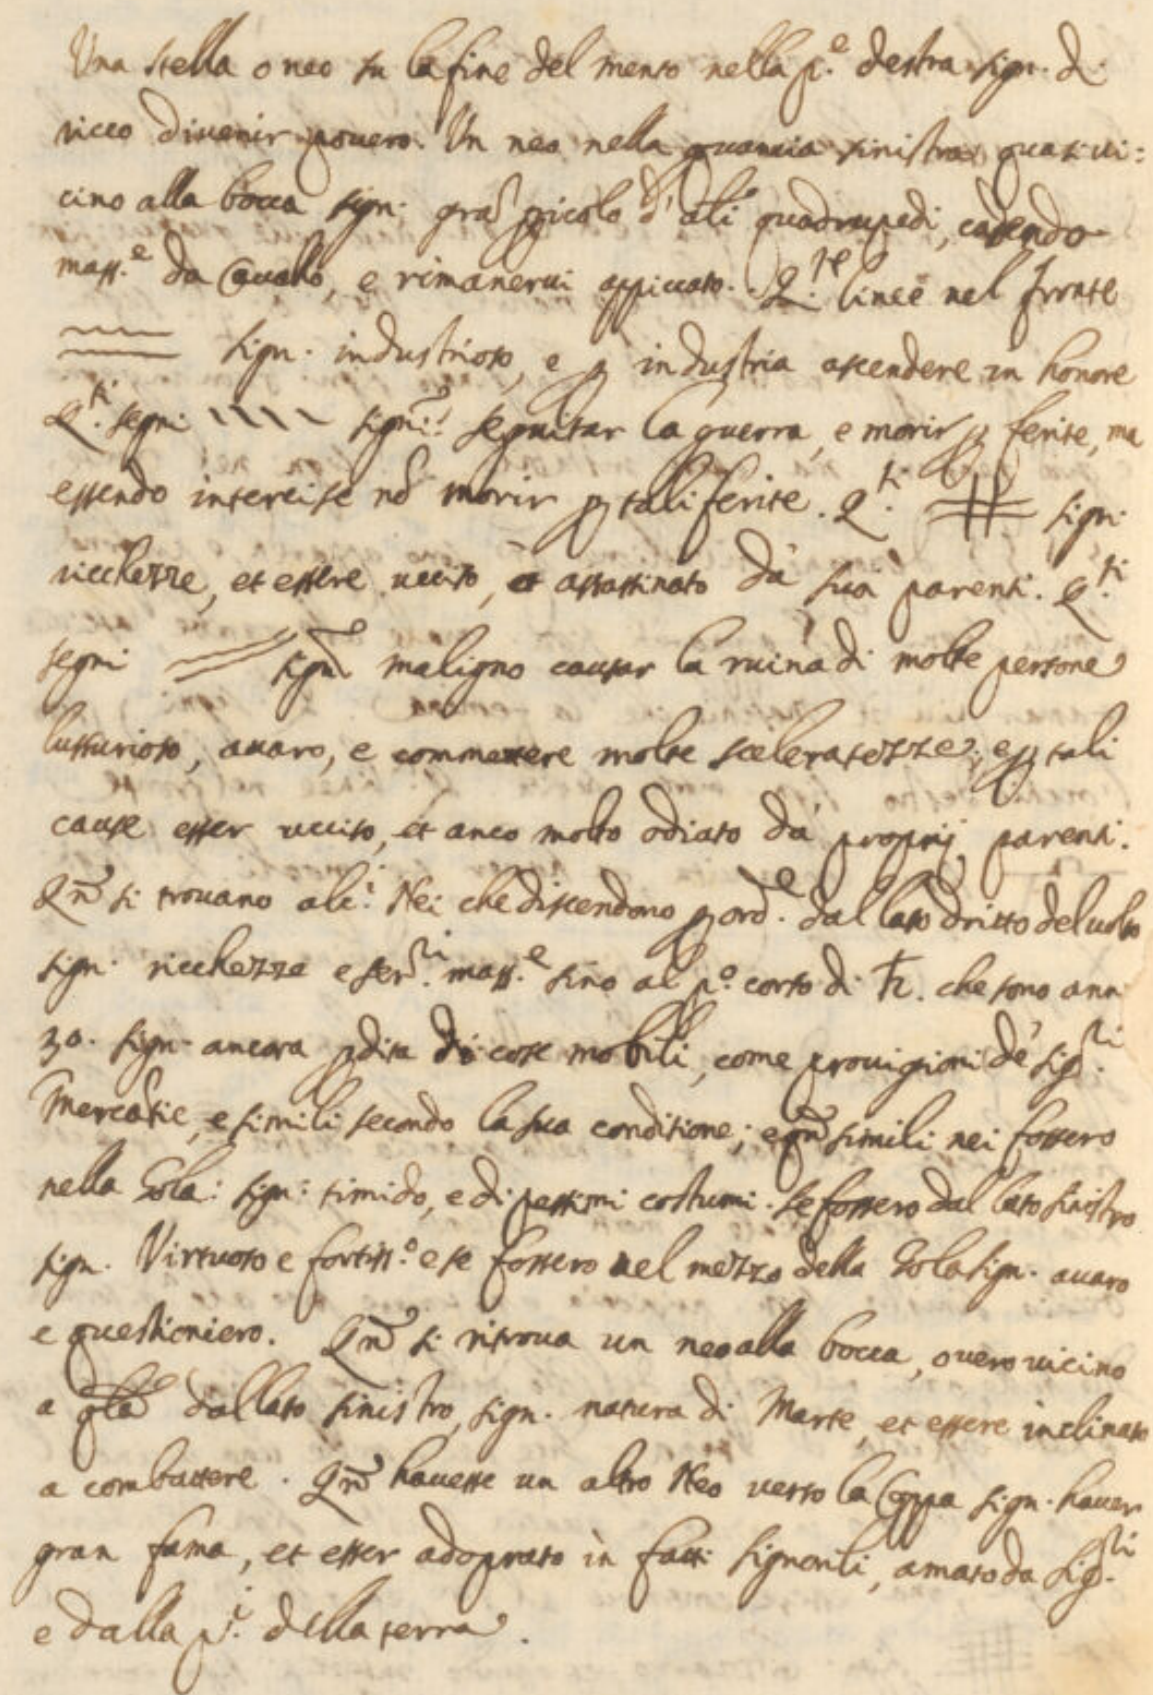 Una stella o neo su la fine del mento nella p.e destra sign. di
ricco divenir povero. Un neo nella guancia sinistra, quasi vi:
cino alla bocca sign. gra᷃ ꝑicolo d'ali quadrupedi, cadendo
mass.e da Cavallo, e rimanervi appiccato. Q.te linee nel fronte
sign. industrioso, e ꝑ industria ascendere in honore
Q.ti segni sign: seguitar la guerra, e morir ꝑ ferite, ma
essendo intercise nõ morir ꝑ tali ferite. Q.ti sign:
ricchezze, et essere ucciso, et assassinato dà suoi parenti. Q.ti
segni sign. maligno causar la ruina di molte persone
lussurioso, avaro, e commettere molte sceleratezze; e ꝑ tali
cause esser ucciso, et anco molto odiato dà proprij parenti.
Qn᷃ si trovano alc.i Nei che discendono ꝑ ord.e dal lato dritto del volto
sign. ricchezze e mass.e sino al p.o corso di ♄. che sono anni
30. sign. ancora ꝑdita di cose mobili, come provigioni de' Sig.ri
Mercãtie, e simili secondo la sua conditione; e qn᷃ simili nei fossero
nella Gola: sign: timido, e di pessimi costumi. Se fossero dal lato sinistro
sign. Virtuoso e fortiss.o e se fossero nel mezzo della Gola sign. avaro
e questioniero. Qn᷃ si ritrova un neo alla bocca, overo vicino
a q̃lla dal lato sinistro, sign. natura di Marte, et essere inclinato
a combattere. Qn᷃ havesse un altro Neo verso la Coppa sign. haver
gran fama, et esser adoprato in fatti signorili, amato da Sig.ri
e dalla p.i della terra.